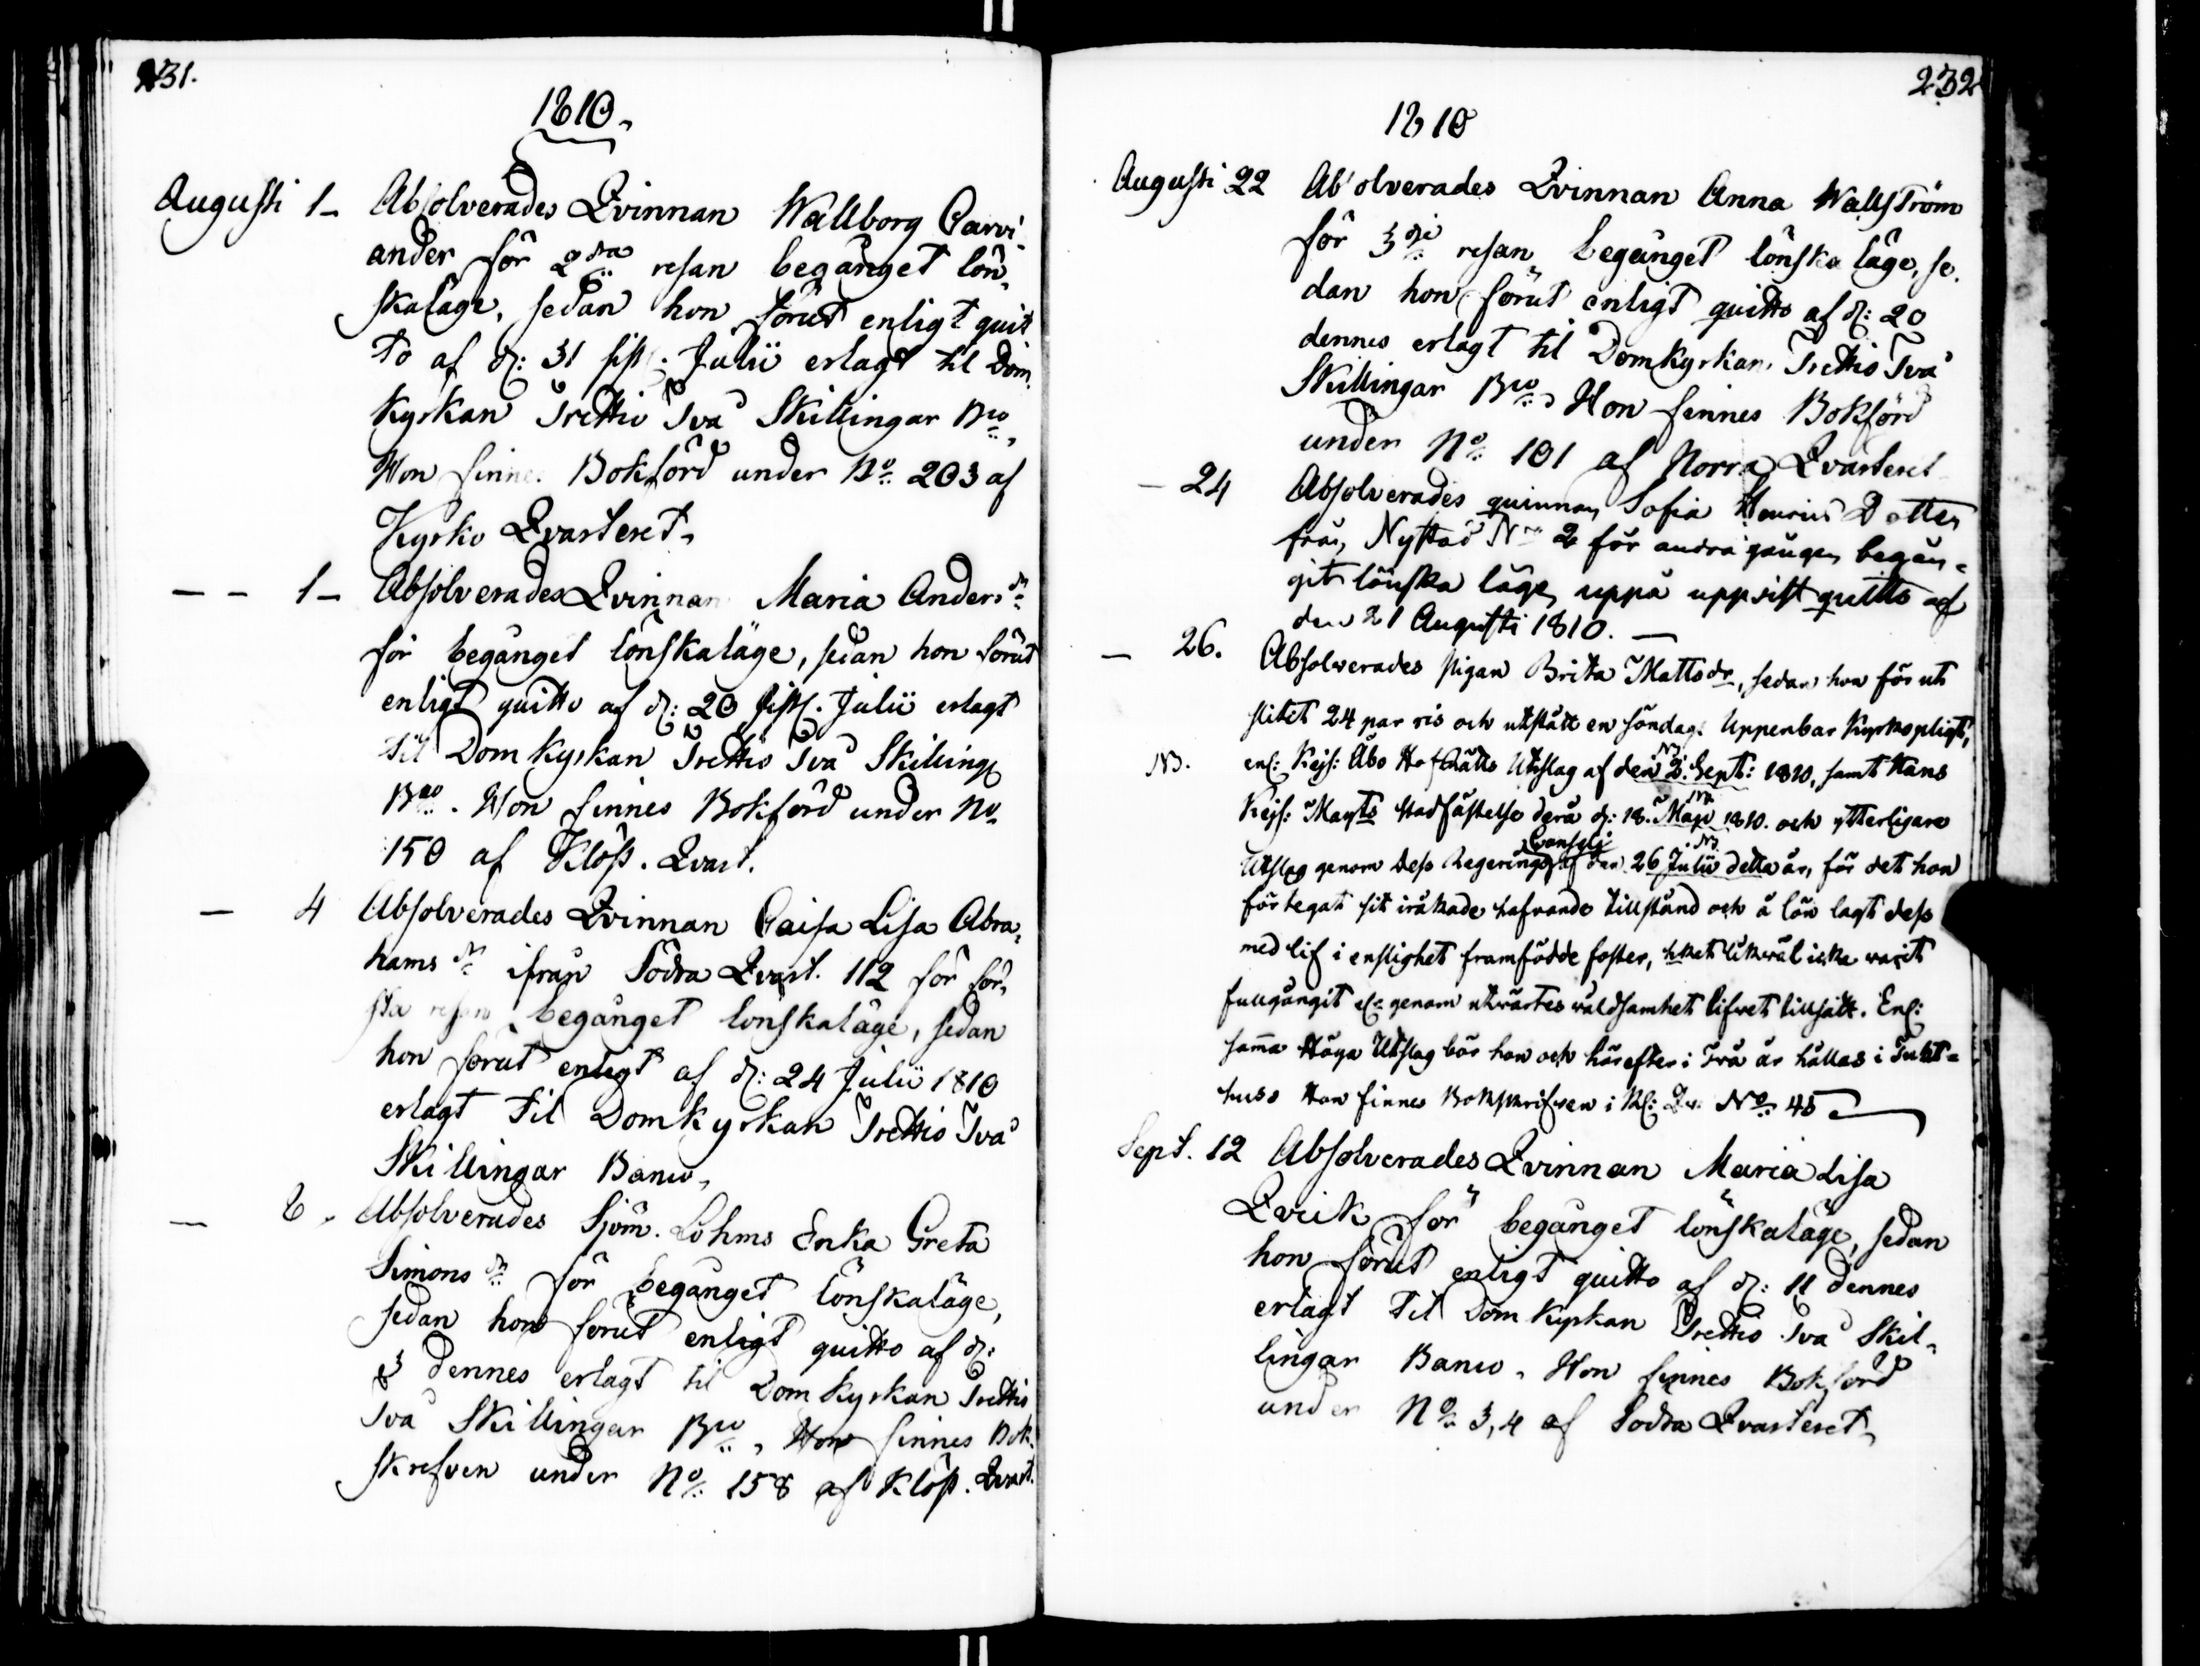 231.
1810.
Augusti 1– Absolverades Qvinnan Wallborg Carvi-
ander för 2dra resan begånget lön-
skaläge, sedan hon förut enligt quit
to af d: 31 sistl. Julii erlagt til Dom
Kyrkan Trettio Två Skillingar Bco,
Hon finnes Bokförd under No 203 af
Kyrko Qvarteret.
– – 1– Absolverades Qvinnan Maria Andersdr
för begånget lönskaläge, sedan hon förut
enligt quitto af d: 20 sistl. Julii erlagt
til Domkyrkan Trettio Två Skilling
Bco. Hon finnes Bokförd under No
150 af Klöst. Qvart.
– 4 Absolverades Qvinnan Caisa Lisa Abra-
hams dr ifrån Södra Qvart. 112 för för-
sta resan begånget lönskaläge, sedan
hon förut enligt af d: 24 Julii 1810
erlagt til Domkyrkan Trettio Två
Skillingar Banco,
– 8. Absolverades Sjöm. Lohms Enka Greta
Simons dr för begånget lönskaläge,
sedan hon förut enligt quitto af d:
3 dennes erlagt til Domkyrkan Trettio
Två Skillingar Bco, Hon finnes Bok-
skrefven under No 158 af Klöst. Qvart.
232
1810
Augusti 22 Absolverades Qvinnan Anna Wallström
för 3dje resan begånget lönska läge, se-
dan hon förut enligt quitto af d: 20
dennes erlagt til Domkyrkan Trettio Två
Skillingar Bco, Hon finnes Bokförd
under No 101 af Norra Qvarteret
– 24 Absolverades quinnan Sofia Henrics Dotter
från Nystad No 2 för andra gången begån-
git lönska läge, uppå uppvist quitto af
den 21 Augusti 1810. –
– 26. Absolverades pigan Brita Mattsdr, sedan hon förut
slitit 24 par ris och utstått en söndags Uppenbar Kyrkopligt,
NB. enl: Kejs: Åbo HofRätts Utslag af den 2. Sept: 1810, samt Hans
Kejs: Mayts stadfästelse derå d: 18. Maji 1810. och ytterligare
Utslag genom Dess Regerings Conselj af den 26 Julii detta år, för det hon
förtegat sit iråkade hafvande tillstånd och å lön lagt dess
med lif i enslighet framfödde foster, hvket likväl icke varit
fullgångit el: genom utvärtes våldsamhet lifvet tillsatt. Enl:
samma Höga Utslag bör hon och härefter i Två år hållas i Tukt-
huss Hon finnes Bokskrifven i Kl: Qv. No 45
Sept. 12 Absolverades Qvinnan Maria Lisa
Qvick för begånget lönskaläge, sedan
hon förut enligt quitto af d: 11 dennes
erlagt til Domkyrkan Trettio Två Skil-
lingar Banco. Hon finnes Bokförd
under No 3,4 af Södra Qvarteret,